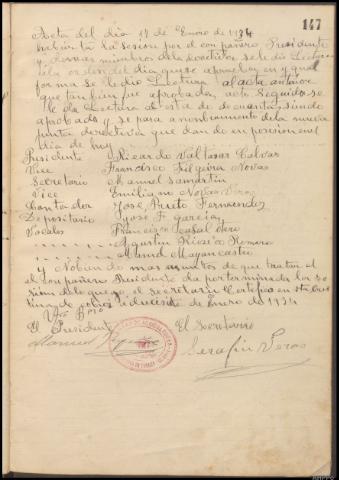 147
Acta del dia 17 de Enero de 1934
habierta la sesion por el conpañero Presidente
y demas miembros de la directiva se le dio Lectura
a la orden del dia que se aprueba, en y gual
forma se le dio Lectura al acta anterior
que tan bien fue aprobada, acto Seguido se
le da Lectura de esta de de cuentas, siendo
aprobado y se pasa a nombramiento de la nueva
junta directiva que dan do en posicion en el
dia de hoy
Presidente Ricardo Valtasar Calvar
Vice Francisco Filgueira Novas
Secretario Manuel Samartin
Vice Emiliano Novas
Contador Jose Prieto Fernandez
Depositario Jose F. Garcia
Vocales Francisco Casal
Agustin Romero
Manuel Mayan Castro
y No biendo mas asuntos de que tratar el
el conpañero Presidente da por terminada la
sesion de lo que yo, el Secretario Certifico en
a de Enero de 1934
Vto Bno
El Presidente El Secretario
Manuel
Serafin Veras